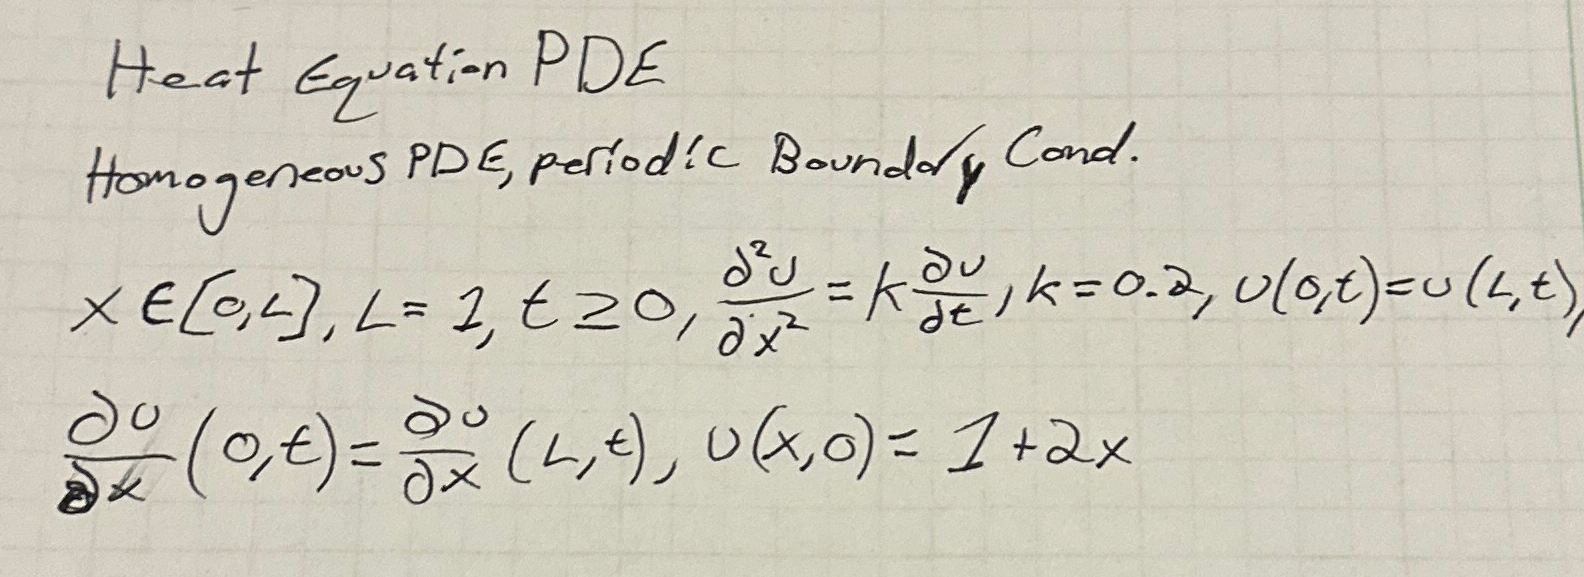 Heat Equation PDE
Homogeneous PDE, periodic Boundary Cond.
x ∈ [0,L], L = 1, t ≥ 0, ∂²u/∂x² = k ∂u/∂t, k = 0.2, u(0,t) = u(L,t),
∂u/∂x (0,t) = ∂u/∂x (L,t), u(x,0) = 1 + 2x